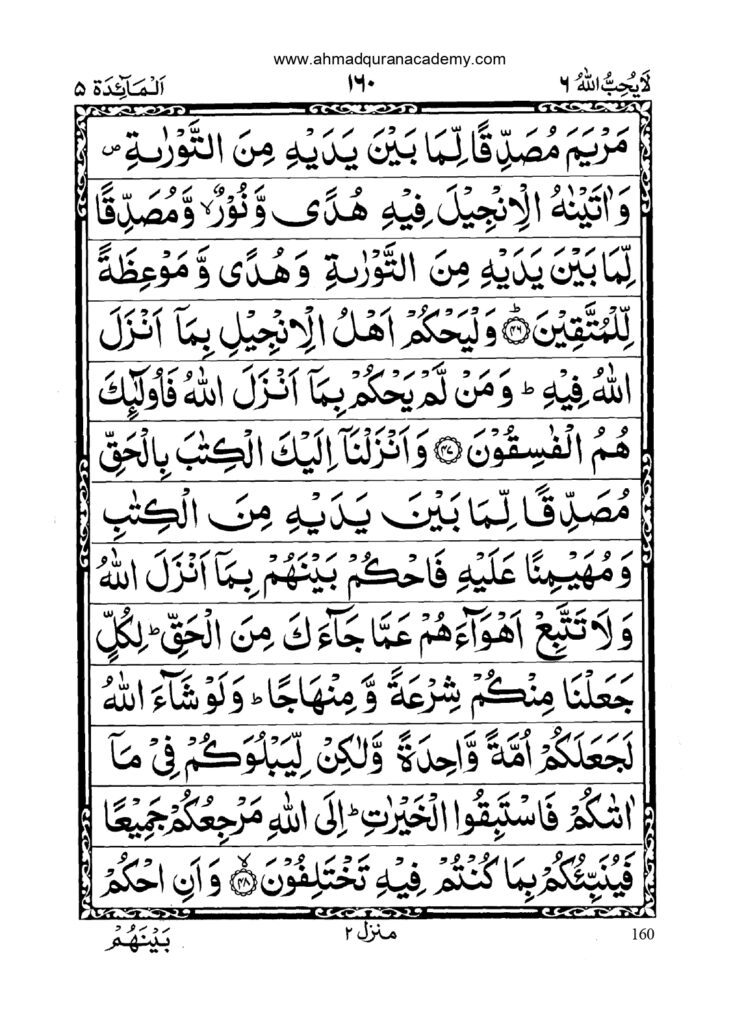 www.ahmadquranacademy.com
لَايُحِبُّ اللّٰهُ ٦ ١٦٠ اَلْمَآئِدَة ٥
مَرْيَمَ مُصَدِّقًا لِّمَا بَيْنَ يَدَيْهِ مِنَ التَّوْرٰىةِ ۖ
وَاٰتَيْنٰهُ الْاِنْجِيْلَ فِيْهِ هُدًى وَّنُوْرٌ ۙ وَّمُصَدِّقًا
لِّمَا بَيْنَ يَدَيْهِ مِنَ التَّوْرٰىةِ وَهُدًى وَّمَوْعِظَةً
لِّلْمُتَّقِيْنَ ؕ﴿۴۶﴾ وَلْيَحْكُمْ اَهْلُ الْاِنْجِيْلِ بِمَاۤ اَنْزَلَ
اللّٰهُ فِيْهِ ؕ وَمَنْ لَّمْ يَحْكُمْ بِمَاۤ اَنْزَلَ اللّٰهُ فَاُولٰٓئِكَ
هُمُ الْفٰسِقُوْنَ ﴿۴۷﴾ وَاَنْزَلْنَاۤ اِلَيْكَ الْكِتٰبَ بِالْحَقِّ
مُصَدِّقًا لِّمَا بَيْنَ يَدَيْهِ مِنَ الْكِتٰبِ
وَمُهَيْمِنًا عَلَيْهِ فَاحْكُمْ بَيْنَهُمْ بِمَاۤ اَنْزَلَ اللّٰهُ
وَلَا تَتَّبِعْ اَهْوَآءَهُمْ عَمَّا جَآءَكَ مِنَ الْحَقِّ ؕ لِكُلٍّ
جَعَلْنَا مِنْكُمْ شِرْعَةً وَّمِنْهَاجًا ؕ وَلَوْ شَآءَ اللّٰهُ
لَجَعَلَكُمْ اُمَّةً وَّاحِدَةً وَّلٰكِنْ لِّيَبْلُوَكُمْ فِيْ مَاۤ
اٰتٰىكُمْ فَاسْتَبِقُوا الْخَيْرٰتِ ؕ اِلَى اللّٰهِ مَرْجِعُكُمْ جَمِيْعًا
فَيُنَبِّئُكُمْ بِمَا كُنْتُمْ فِيْهِ تَخْتَلِفُوْنَ ۙ﴿۴۸﴾ وَاَنِ احْكُمْ
160 منزل ٢ بَيْنَهُمْ